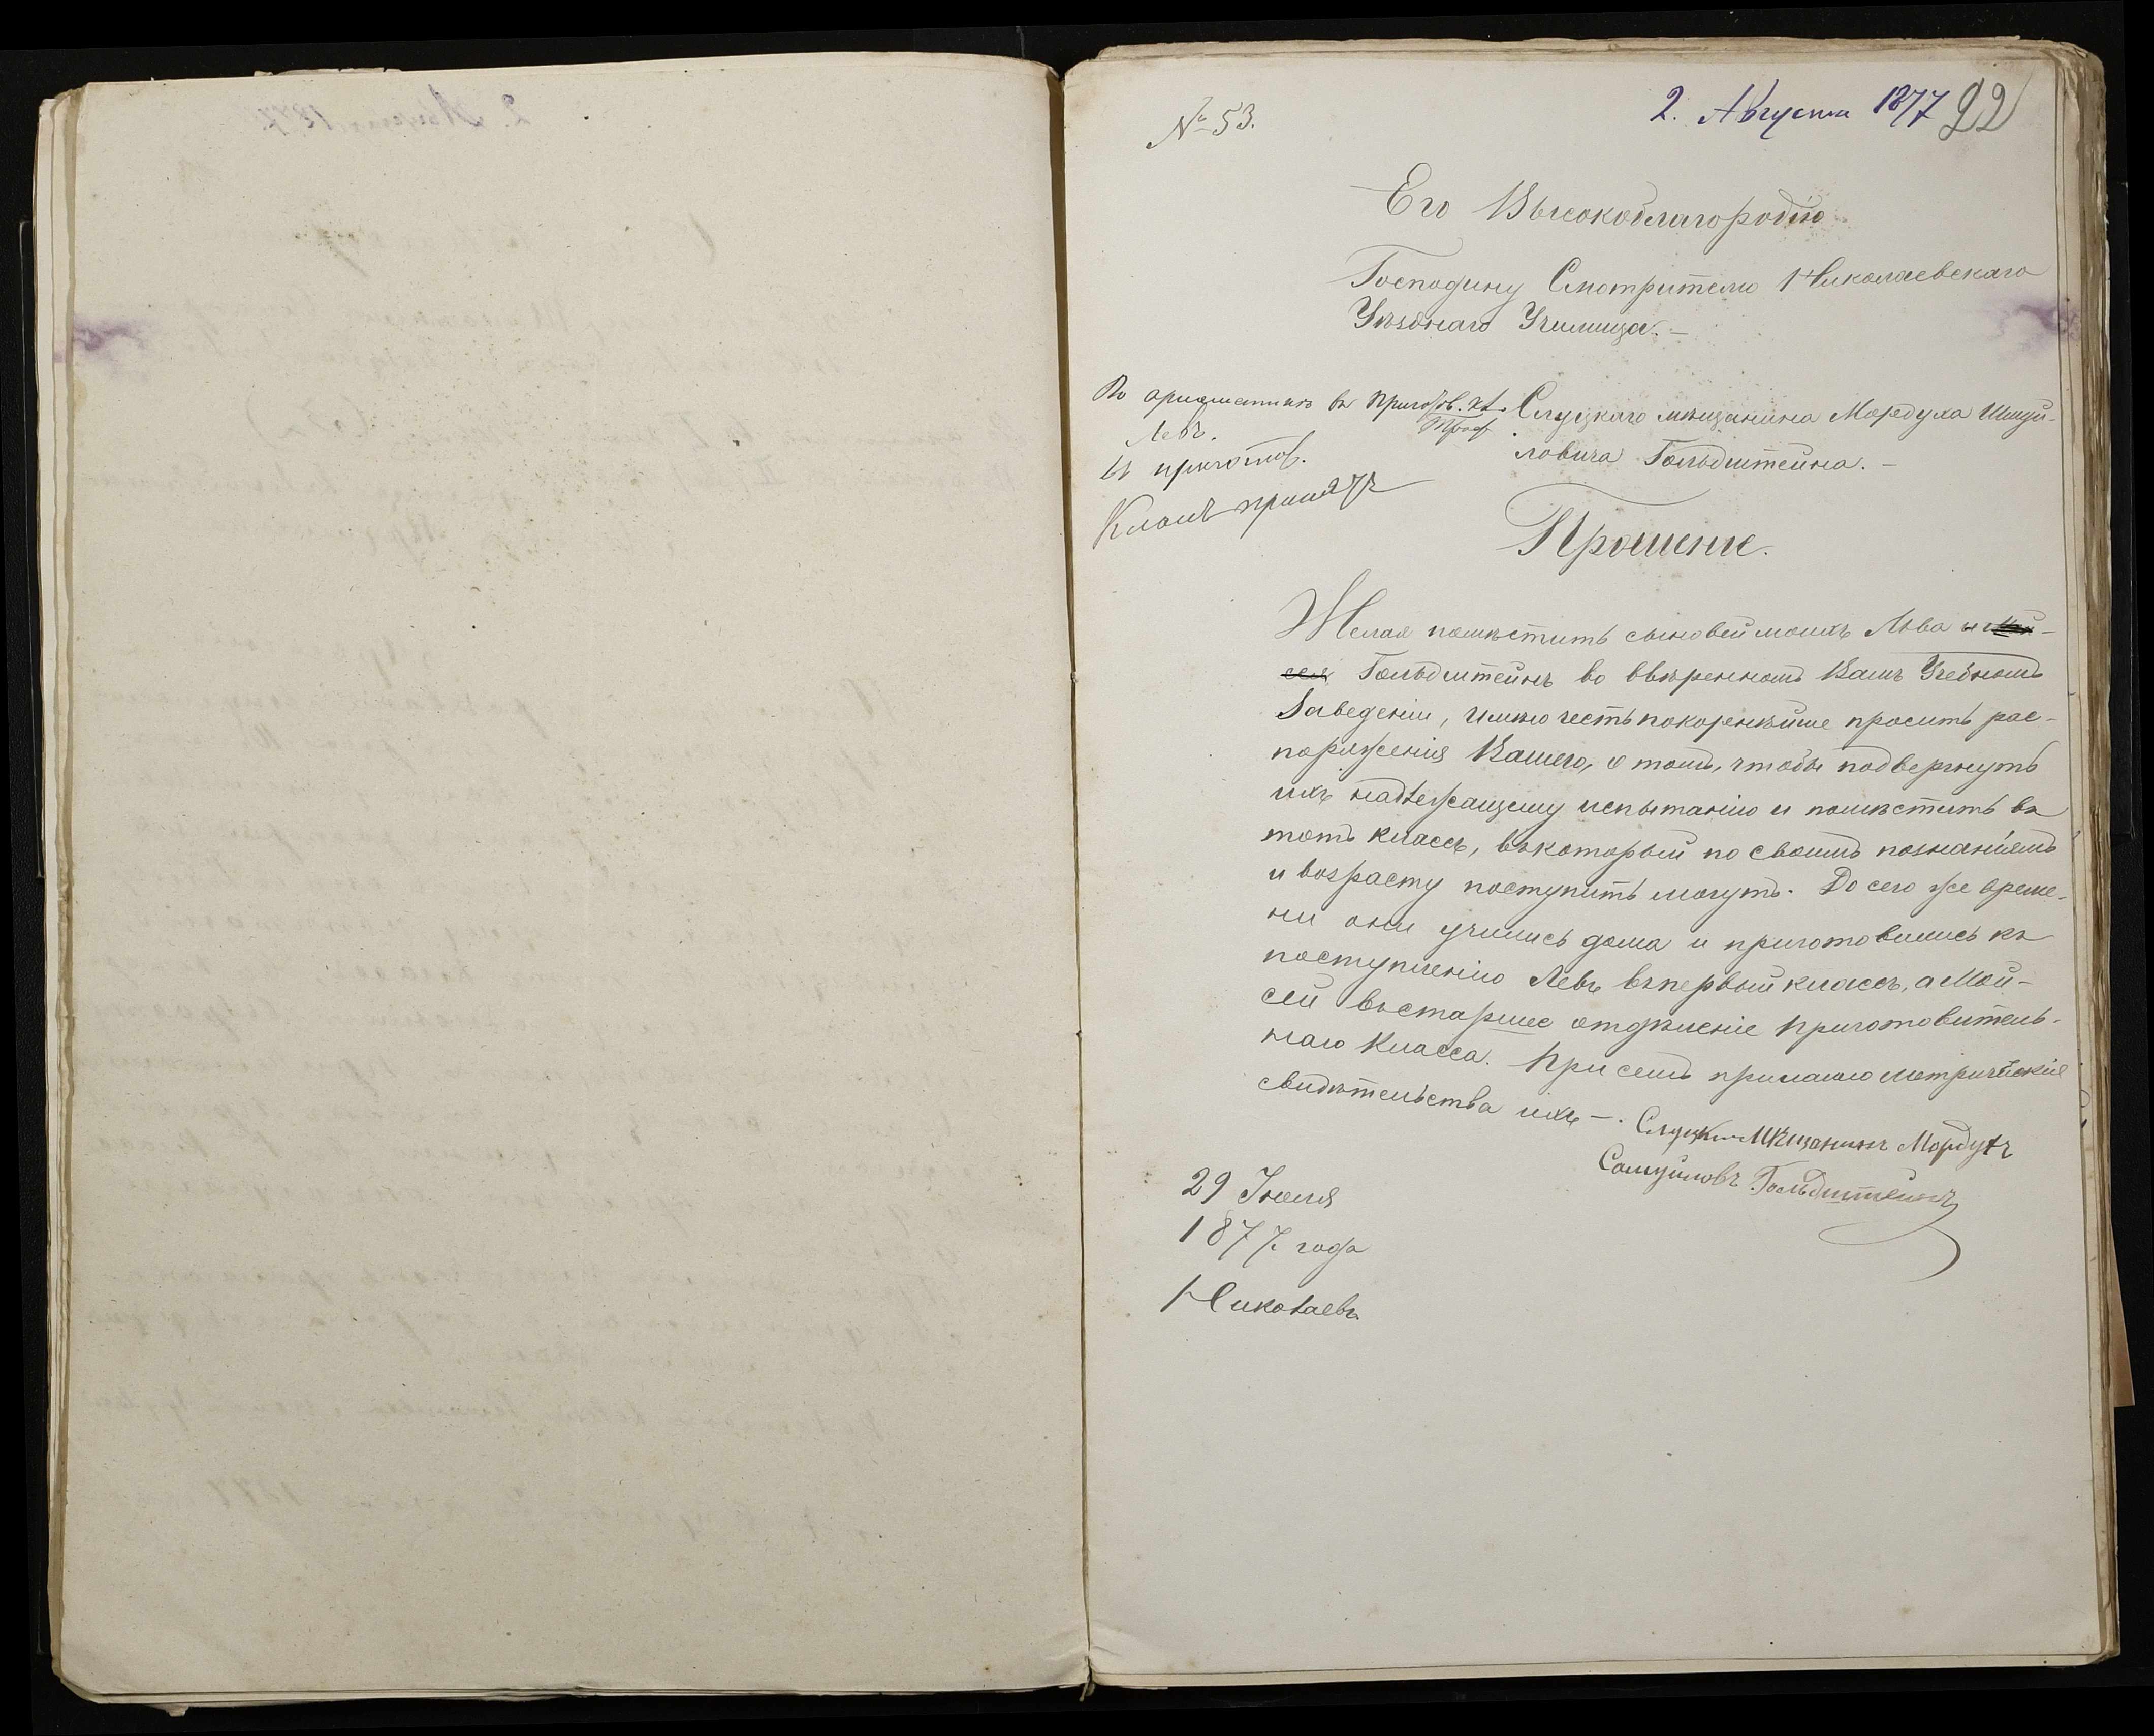 № 53.
2. Августа 1877 92
Его Высокоблагородію
Господину Смотрителю Николаевскаго
Уѣзднаго Училища. —
По ариѳметикѣ въ пригот. кл.
Левъ.
въ приготов.
Классъ принятъ
Слуцкаго мѣщанина Мордуха
ловича Гольдштейна. —
Прошеніе.
Желая помѣстить сыновей моихъ Льва и Мой-
сея Гольдштейнъ во ввѣренномъ Вамъ Учебномъ
Заведеніи, имѣю честь покорнѣйше просить рас-
поряженія Вашего, о томъ, чтобы подвергнуть
ихъ надлежащему испытанію и помѣстить въ
тотъ классъ, въ который по своимъ познаніямъ
и возрасту поступить могутъ. До сего же време-
ни они учились дома и приготовились къ
поступленію Левъ въ первый классъ, а Мой-
сей въ старшее отдѣленіе приготовитель-
наго класса. При семъ прилагаю метрическіе
свидѣтельства ихъ —. Слуцкій Мѣщанинъ Мордухъ
Самуиловъ Гольдштейнъ
29 Іюля
1877 года
Николаевъ